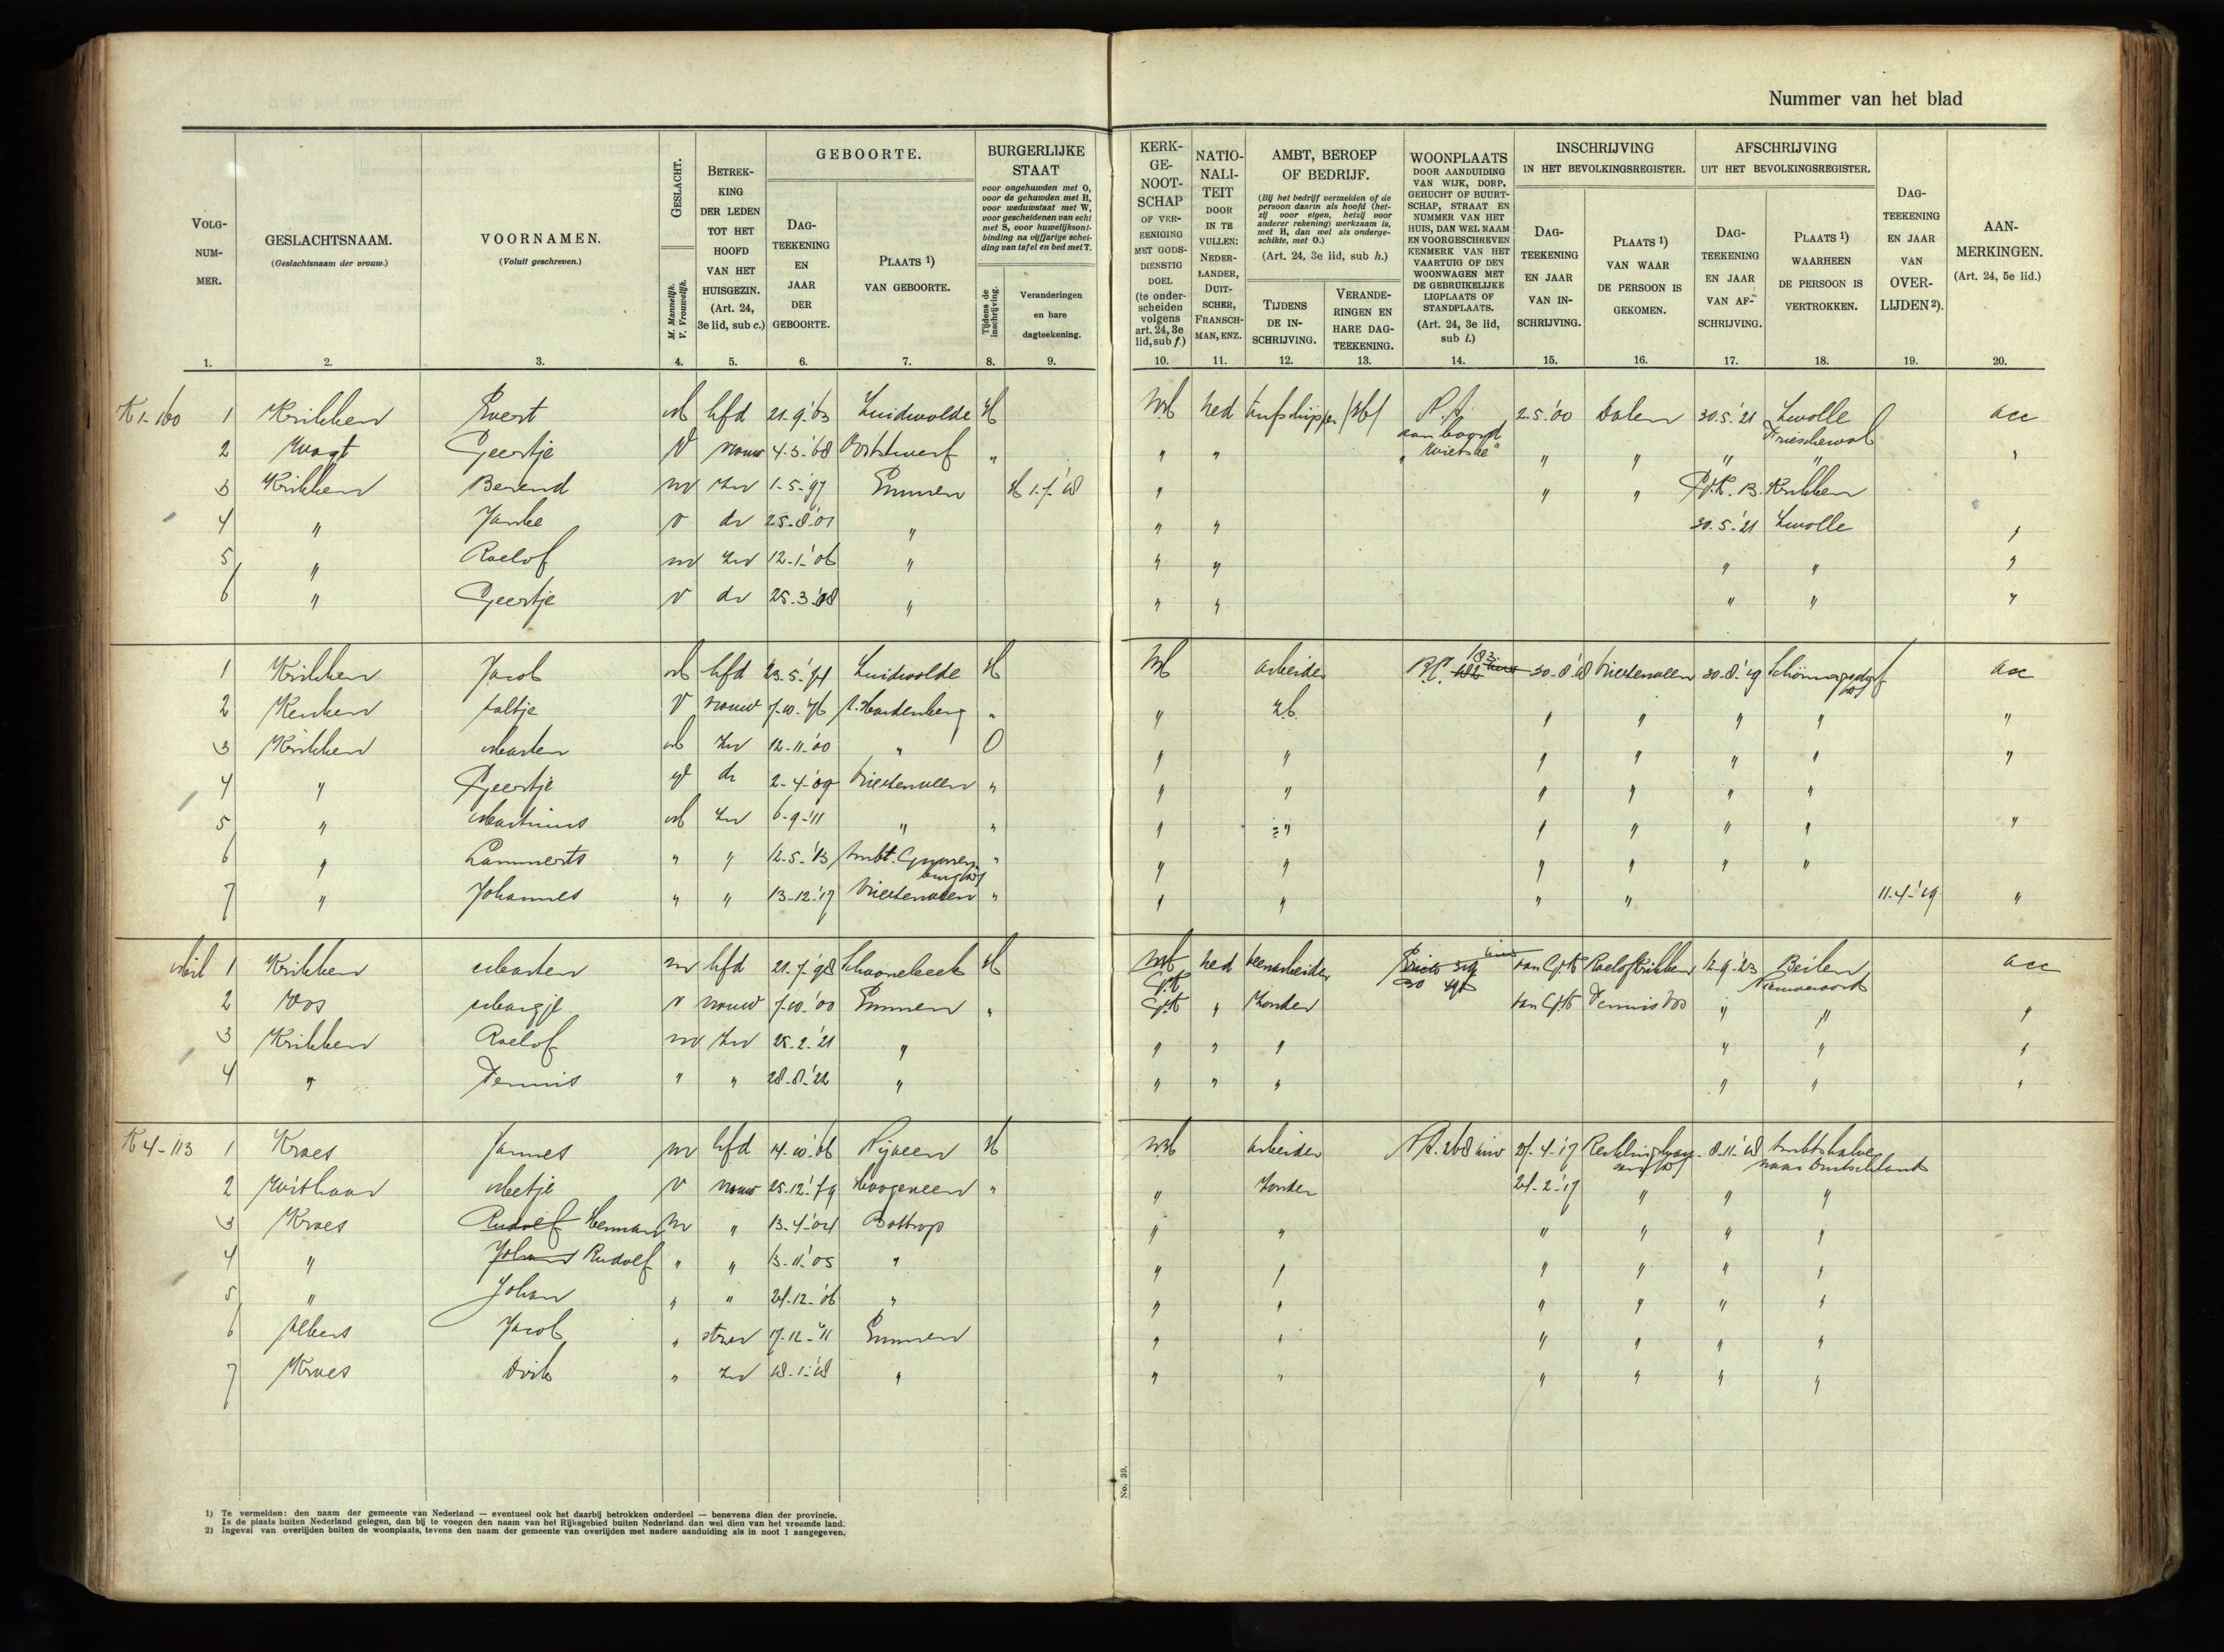 Nummer van het blad
VOLG-NUM-MER.
GESLACHTSNAAM.
(Geslachtsnaam der vrouw.)
VOORNAMEN.
(Voluit geschreven.)
GESLACHT.
M. Mannelijk.
V. Vrouwelijk.
BETREK-KING DER LEDEN TOT HET HOOFD VAN HET HUISGEZIN.
(Art. 24, 3e lid, sub c.)
GEBOORTE.
DAG-TEEKENING EN JAAR DER GEBOORTE.
PLAATS 1) VAN GEBOORTE.
BURGERLIJKE STAAT
voor ongehuwden met O,
voor de gehuwden met H,
voor weduwstaat met W,
voor gescheidenen van echt
met S, voor huwelijksont-
binding na vijfjarige schei-
ding van tafel en bed met T.
Tijdens de inschrijving.
Veranderingen en hare dagteekening.
KERK-GE-NOOT-SCHAP
OF VER-EENIGING MET GODS-DIENSTIG DOEL
(te onder-scheiden volgens art. 24, 3e lid, sub f.)
NATIO-NALI-TEIT
DOOR IN TE VULLEN: NEDER-LANDER, DUIT-SCHER, FRANSCH-MAN, ENZ.
AMBT, BEROEP OF BEDRIJF.
(Bij het bedrijf vermelden of de
persoon daarin als hoofd (het-
zij voor eigen, hetzij voor
anderer rekening) werkzaam is,
met H, dan wel als onderge-
schikte, met O.)
(Art. 24, 3e lid, sub h.)
TIJDENS DE IN-SCHRIJVING.
VERANDE-RINGEN EN HARE DAG-TEEKENING.
WOONPLAATS
DOOR AANDUIDING
VAN WIJK, DORP,
GEHUCHT OF BUURT-
SCHAP, STRAAT EN
NUMMER VAN HET
HUIS, DAN WEL NAAM
EN VOORGESCHREVEN
KENMERK VAN HET
VAARTUIG OF DEN
WOONWAGEN MET
DE GEBRUIKELIJKE
LIGPLAATS OF
STANDPLAATS.
(Art. 24, 3e lid, sub i.)
INSCHRIJVING
IN HET BEVOLKINGSREGISTER.
DAG-TEEKENING EN JAAR VAN IN-SCHRIJVING.
PLAATS 1) VAN WAAR DE PERSOON IS GEKOMEN.
AFSCHRIJVING
UIT HET BEVOLKINGSREGISTER.
DAG-TEEKENING EN JAAR VAN AF-SCHRIJVING.
PLAATS 1) WAARHEEN DE PERSOON IS VERTROKKEN.
DAG-TEEKENING EN JAAR VAN OVER-LIJDEN 2).
AAN-MERKINGEN.
(Art. 24, 5e lid.)
1. 2. 3. 4. 5. 6. 7. 8. 9. 10. 11. 12. 13. 14. 15. 16. 17. 18. 19. 20.
K1-160 1 Krikken Evert M hfd 21-9-'63 Zuidwolde H NH ned 2-5-'00 Dalen 30.5.'21 Zwolle acc
aan boord Frieschewal
2 Geertje V vrouw 4-3-'68 " " " " " " " "
3 Krikken Berend m zn 1-5-'97 Emmen " " " B. Krikken
4 " v dr 25-8-'01 " " " 30.5.'21 Zwolle "
5 " Roelof m zn 12-1-'06 " " " " " "
6 " Geertje v dr 25-3-'08 " " " " " "
1 Krikken Jacob M hfd 23-5-'74 Zuidwolde H NH arbeider 183 30-8-'18 Vriezenveen 30-8-'19 acc
2 V vrouw 7-10-'76 " " " " " " "
3 Krikken Marten M zn 12-11-'00 " O " " " " " " "
4 " Geertje V dr 2-4-'09 Vriezenveen " " " " " " "
5 " Martinus M zn 6-9-'11 " " " " " " " " "
6 " Lammerts " " 12-5-'13 " " " " " " "
7 " Johannes " " 13-12-'17 Vriezenveen " " " " " 11-4-'19 "
1 Krikken Marten m hfd 21-7-'98 Schoonebeek H NH ned veenarbeider van Roelof Krikken 12-9-'23 Beilen acc
2 Vos Margje v vrouw 7-10-'00 Emmen " " Zonder van Tennis Vos " " "
3 Krikken Roelof m zn 25-2-'21 " " " " " " "
4 " Tennis " " 28-8-'22 " " " " " " "
K4-113 1 Kroes Jannes m hfd 14-10-'66 Nijveen H NH arbeider 8-11-'18 Ambtshalve
naar Duitschland
2 Meetje V vrouw 25-12-'79 Hoogeveen " " Zonder 24-2-'17 " " "
3 Kroes Rudolf Herman m " 13-4-'04 Bottrop " " " " " "
4 " Johan Rudolf " " 13-11-'05 " " " " " " "
5 " Johan " " 24-12-'06 " " " " " " "
6 Albers Jacob " 17-12-'11 Emmen " " " " " "
7 Kroes Dirk " zn 18-1-'18 " " " " " " "
No. 39.
1) Te vermelden: den naam der gemeente van Nederland — eventueel ook het daarbij betrokken onderdeel — benevens dien der provincie.
Is de plaats buiten Nederland gelegen, dan bij te voegen den naam van het Rijksgebied buiten Nederland dan wel dien van het vreemde land.
2) Ingeval van overlijden buiten de woonplaats, tevens den naam der gemeente van overlijden met nadere aanduiding als in noot 1 aangegeven.